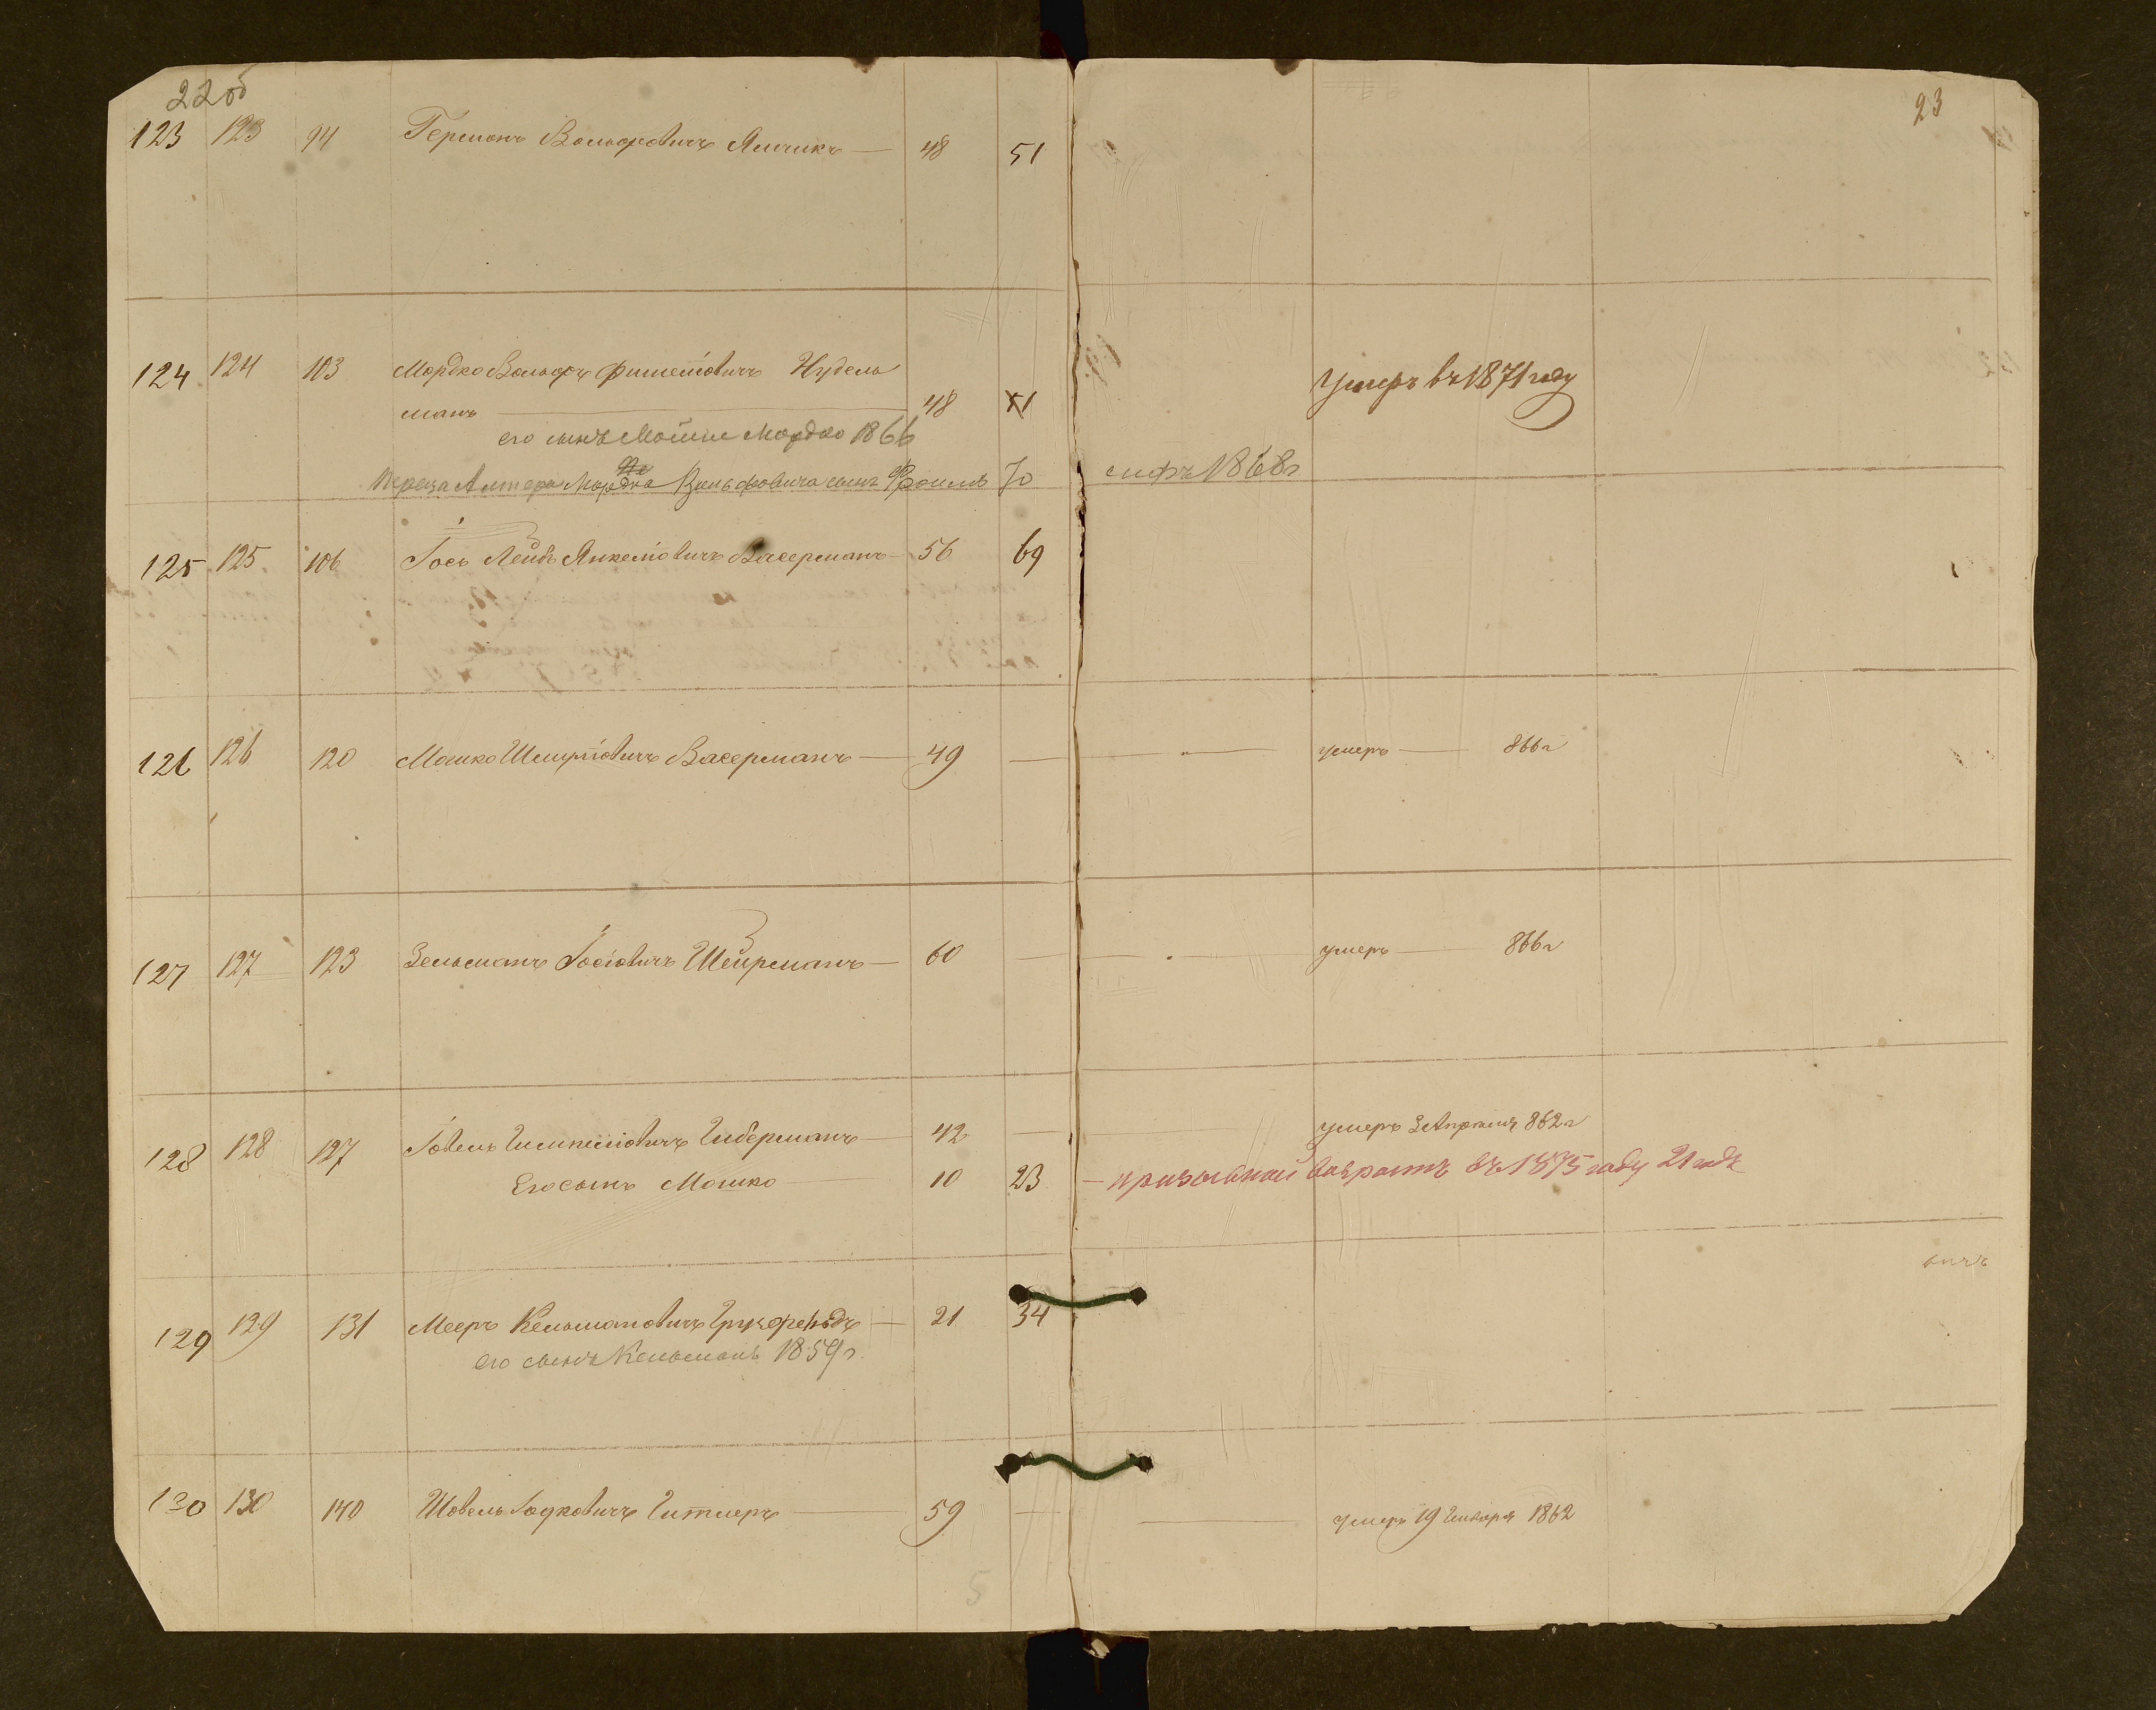 22об
23
123 123 94 Германъ Вольфовичъ Ямчикъ — 48 51
124 124 103 Мордко Вольфъ Фишелiовичъ Нудель
манъ — 48 51 умеръ въ 1871 году
его сынъ Мойше Мордко 1866
Альтера Мордка Вольфовича сынъ Фроимъ 70 1868г
125 125 106 Іось Лейбъ Янкелiовичъ Васерманъ — 56 69
126 126 120 Мошко Шмулiовичъ Васерманъ — 49 — умеръ — 866г
127 127 123 Зельманъ Іосiовичъ Шейрманъ — 60 — умеръ — 866г
128 128 127 Іовель Гимпелiовичъ Гиберманъ — 42 — умеръ 3 Апреля 862г
Его сынъ Мошко — 10 23 — призывной возрастъ въ 1875 году 21 года
129 129 131 Мееръ Кельмановичъ — 21 34
его сынъ Кельманъ 1859г.
вичъ
130 130 140 Шовель Гитлеръ — 59 — умеръ 19 Января 1862
5